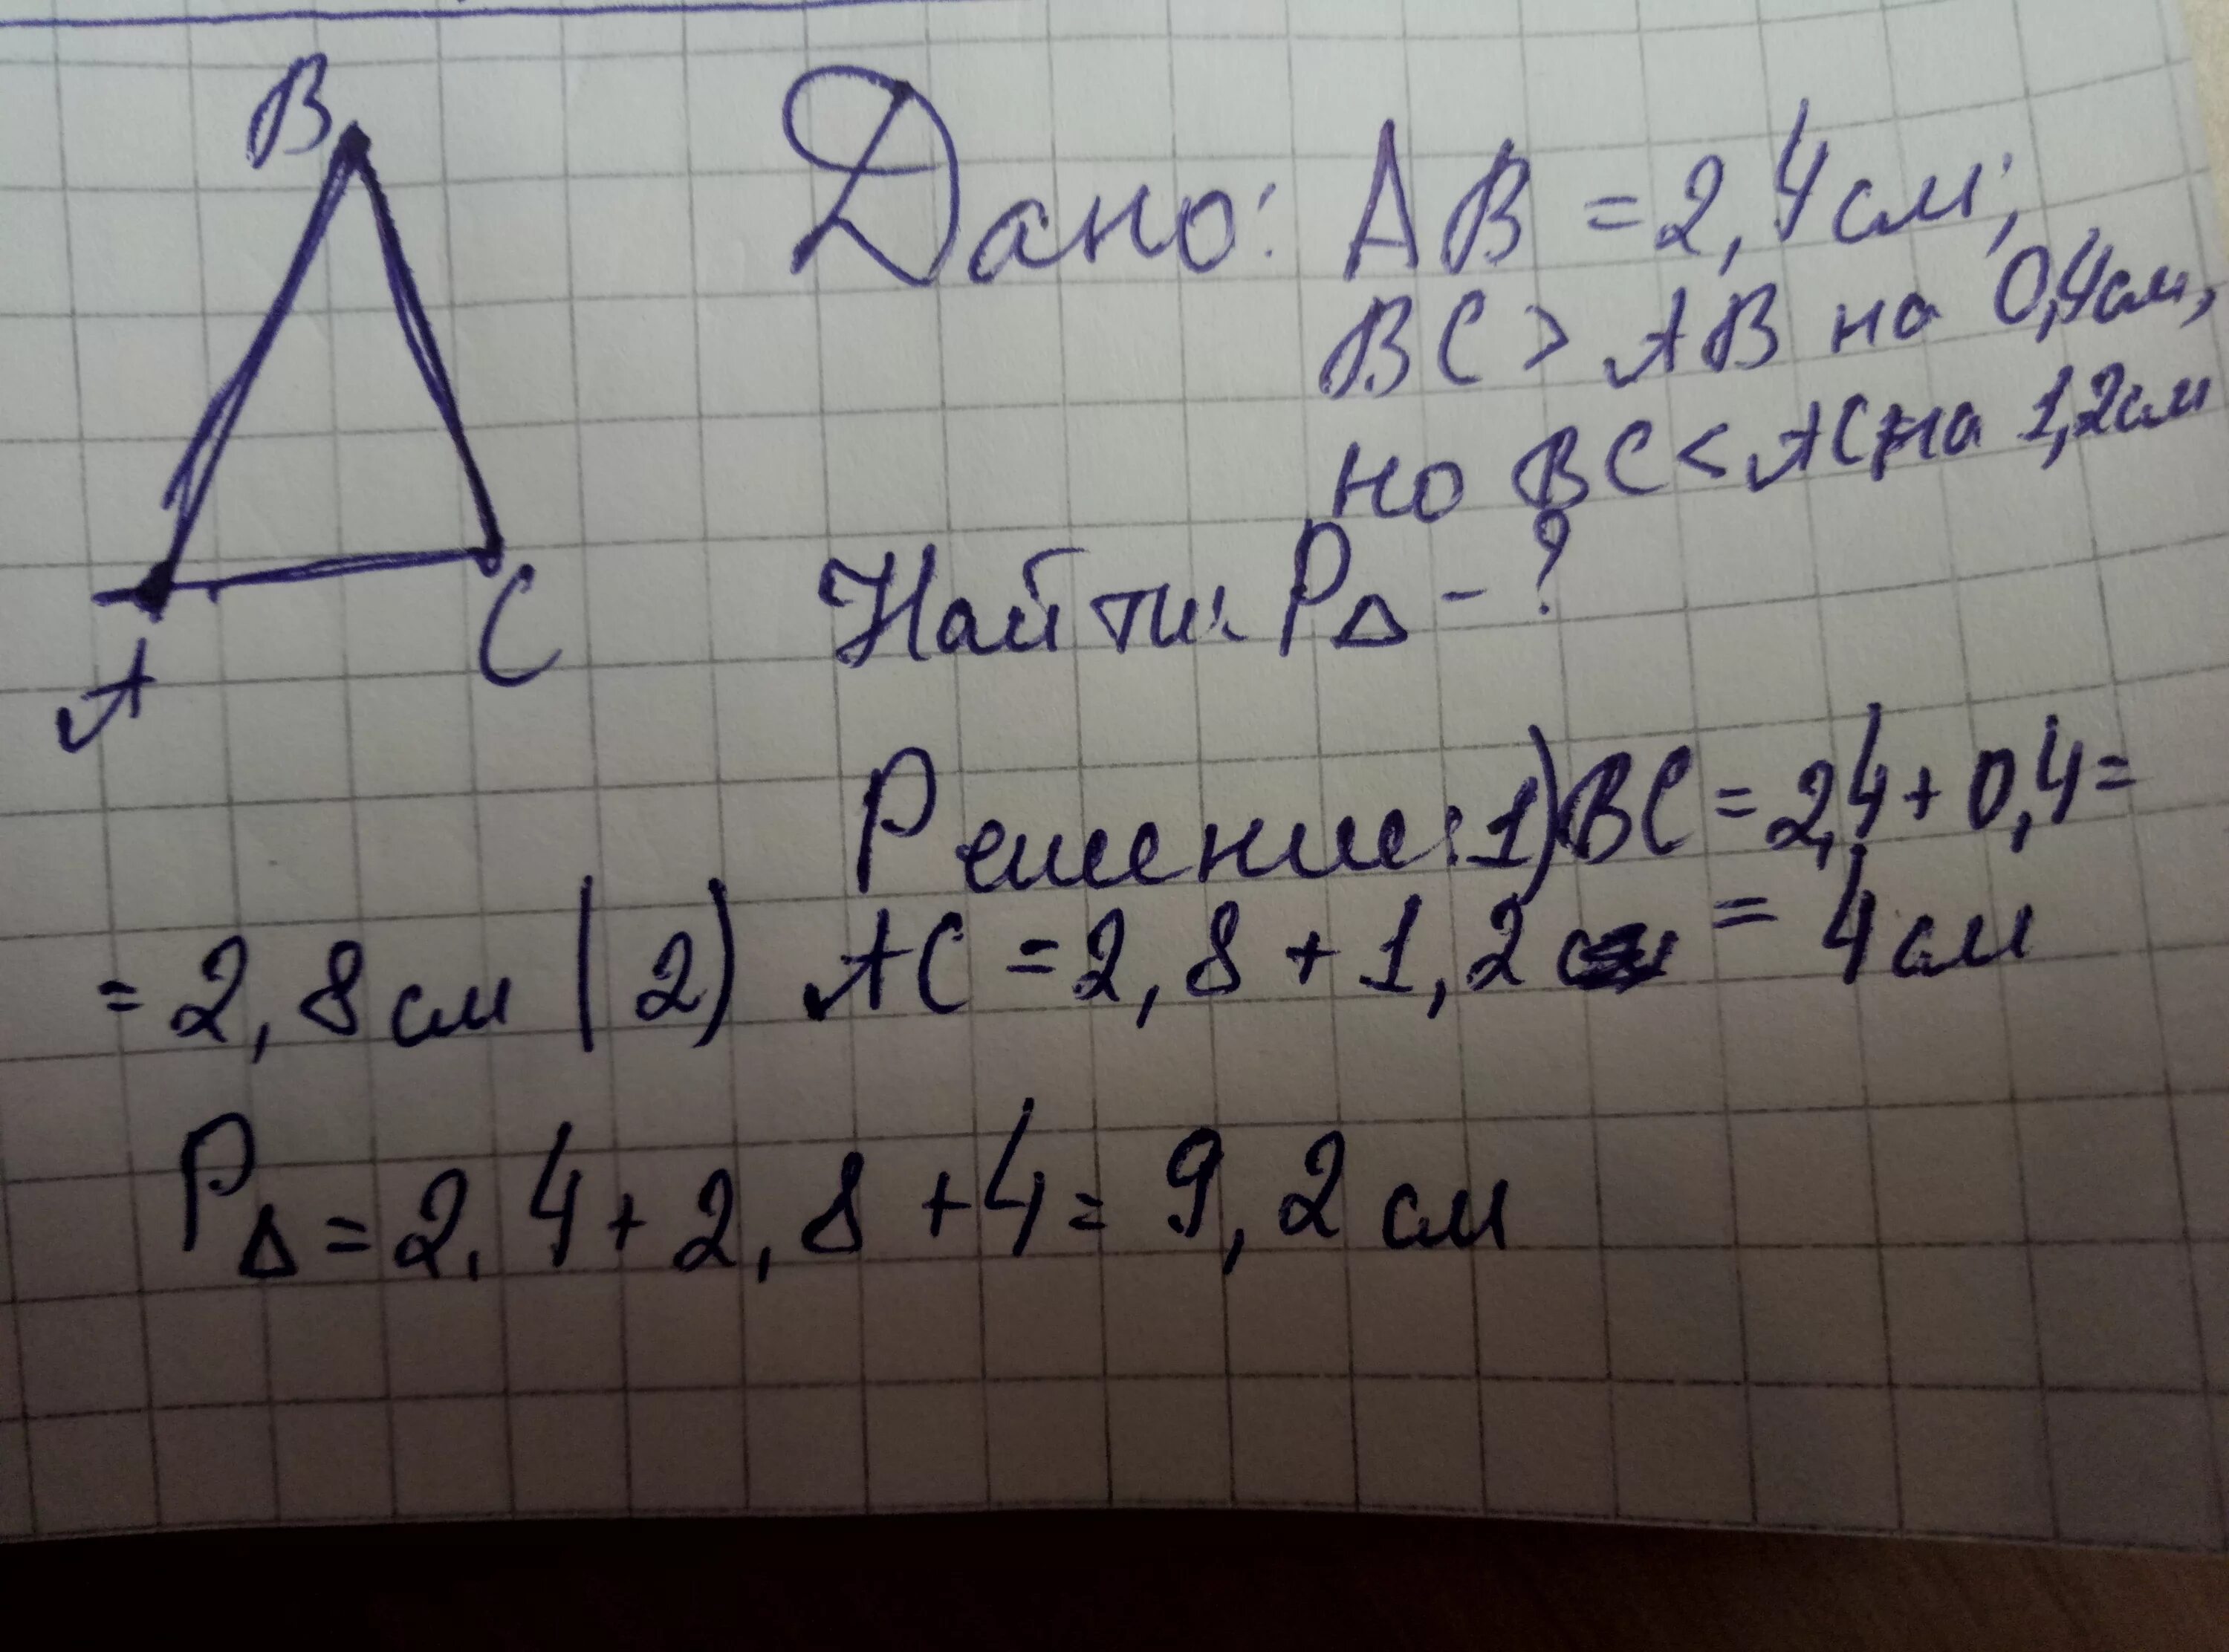 B
Дано: AB = 2,4 см;
BC > AB на 0,4 см,
но BC < AC на 1,2 см
Найти: P△ - ?
A
C
Решение: 1) BC = 2,4 + 0,4 =
= 2,8 см | 2) AC = 2,8 + 1,2 = 4 см
P△ = 2,4 + 2,8 + 4 = 9,2 см